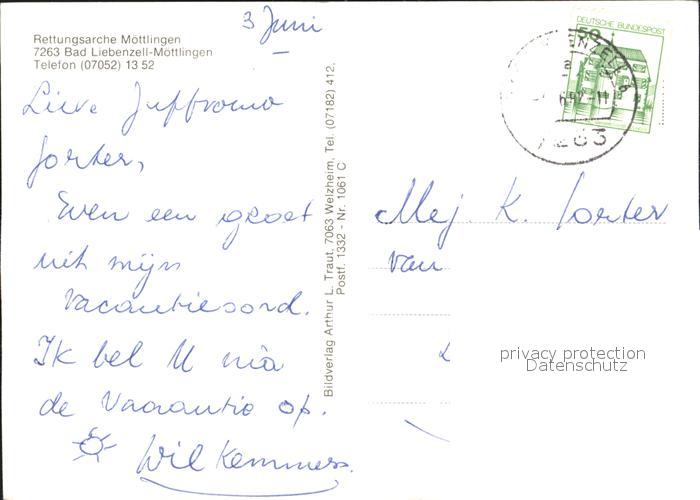 3 Juni
Rettungsarche Möttlingen
7263 Bad Liebenzell-Möttlingen
Telefon (07052) 13 52
Lieve Juffrouw
Jorter,
Even een groet
uit mijn
Vacantieoord.
Ik bel U na
de Vacantie op.
Wil Kemmers.
Bildverlag Arthur L. Traut, 7063 Welzheim, Tel. (07182) 412,
Postf. 1332 - Nr. 1061 C
DEUTSCHE BUNDESPOST
50
7263
Mej K. Jorter
van
privacy protection
Datenschutz